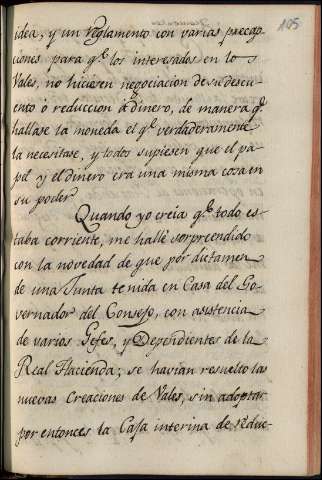 195
idea, y un reglamento con varias precau-
ciones para q.e los interesados en los
Vales, no hiciesen negociacion de su descu-
ento ó reduccion á dinero, de manera q.e
hallase la moneda el q.e verdaderamente
la necesitase, y todos supiesen que el pa-
pel y el dinero era una misma cosa en
su poder.
Quando yo creia q.e todo es-
taba corriente, me hallé sorprendido
con la novedad de que por dictamen
de una Junta tenida en Casa del Go-
vernador del Consejo, con asistencia
de varios Gefes, y Dependientes de la
Real Hacienda; se havian resuelto las
nuevas creaciones de Vales, sin adoptar
por entonces la Caja interina de reduc-